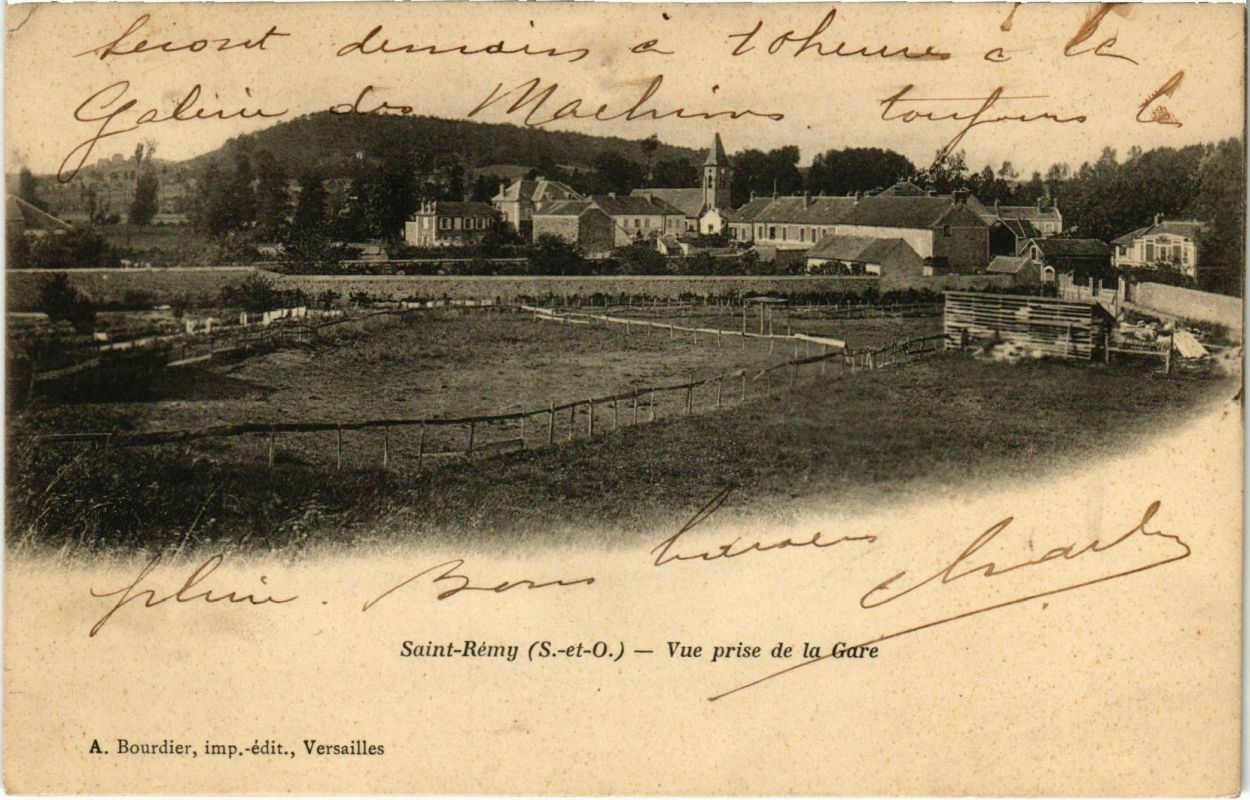 Seront demain à 10heures à la
Galerie des Machines. toujours la
pluie. Bons baisers Charles
Saint-Rémy (S.-et-O.) — Vue prise de la Gare
A. Bourdier, imp.-édit., Versailles